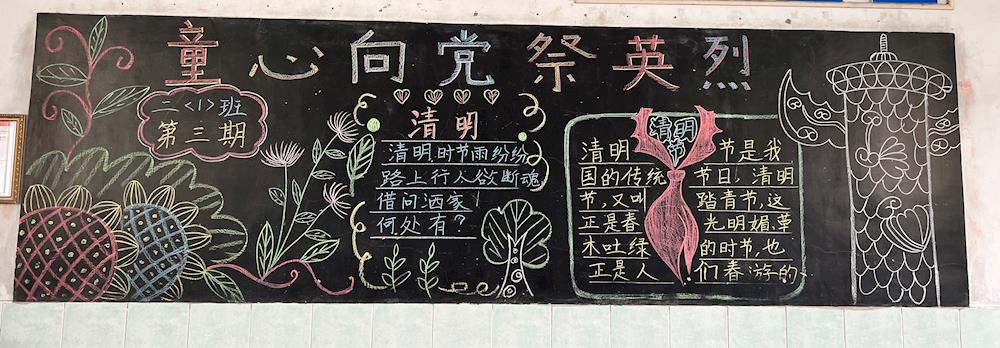 童心向党祭英烈
二<1>班
第三期
清明
清明时节雨纷纷
路上行人欲断魂
借问洒家
何处有?
清明
节
清明 节是我
国的传统 节日,清明
节,又叫 踏青节,这
正是春 光明媚,草
木吐绿 的时节,也
正是人 们春游的